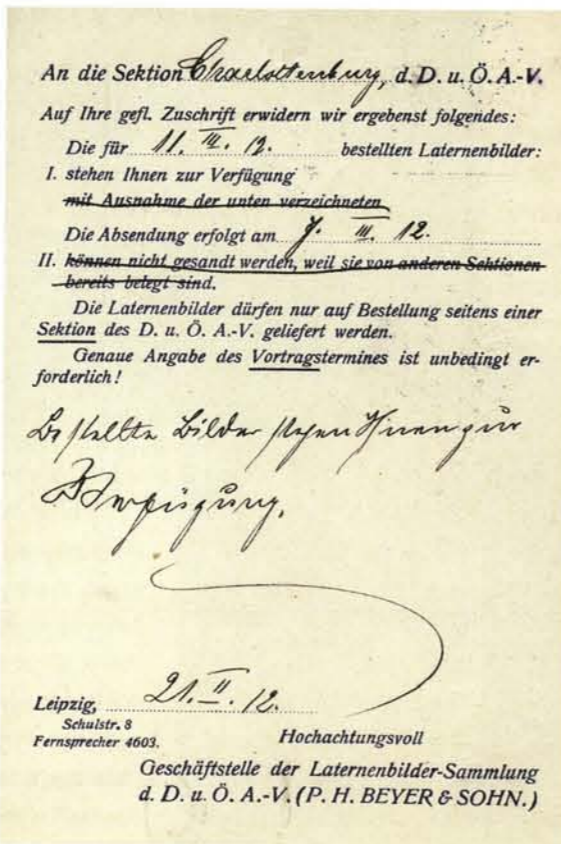 An die Sektion Charlottenburg, d. D. u. Ö. A.-V.
Auf Ihre gefl. Zuschrift erwidern wir ergebenst folgendes:
Die für 11. III. 12. bestellten Laternenbilder:
I. stehen Ihnen zur Verfügung
mit Ausnahme der unten verzeichneten
Die Absendung erfolgt am 7. III. 12.
II. können nicht gesandt werden, weil sie von anderen Sektionen
bereits belegt sind.
Die Laternenbilder dürfen nur auf Bestellung seitens einer
Sektion des D. u. Ö. A.-V. geliefert werden.
Genaue Angabe des Vortragstermines ist unbedingt er-
forderlich!
Bestellte Bilder stehen Ihnen zur
Verfügung.
Leipzig, 21. II. 12.
Schulstr. 8
Fernsprecher 4603. Hochachtungsvoll
Geschäftstelle der Laternenbilder-Sammlung
d. D. u. Ö. A.-V. (P. H. BEYER & SOHN.)